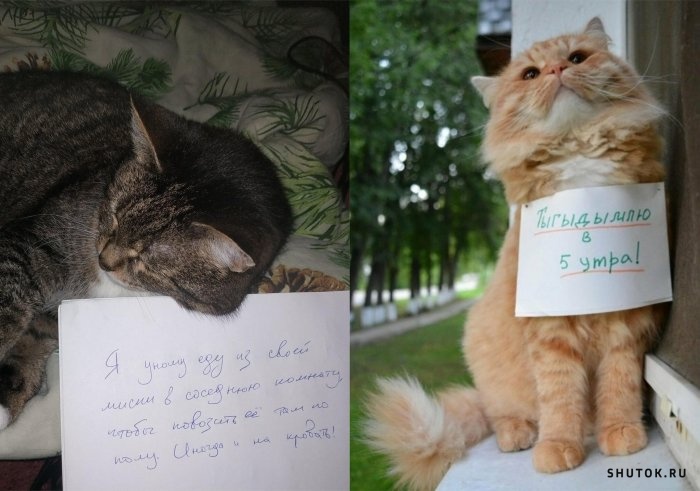 Я уношу еду из своей
миски в соседнюю комнату,
чтобы повозить её там по
полу. Иногда и на кровать!
Тыгыдымлю
в
5 утра!
SHUTOK.RU